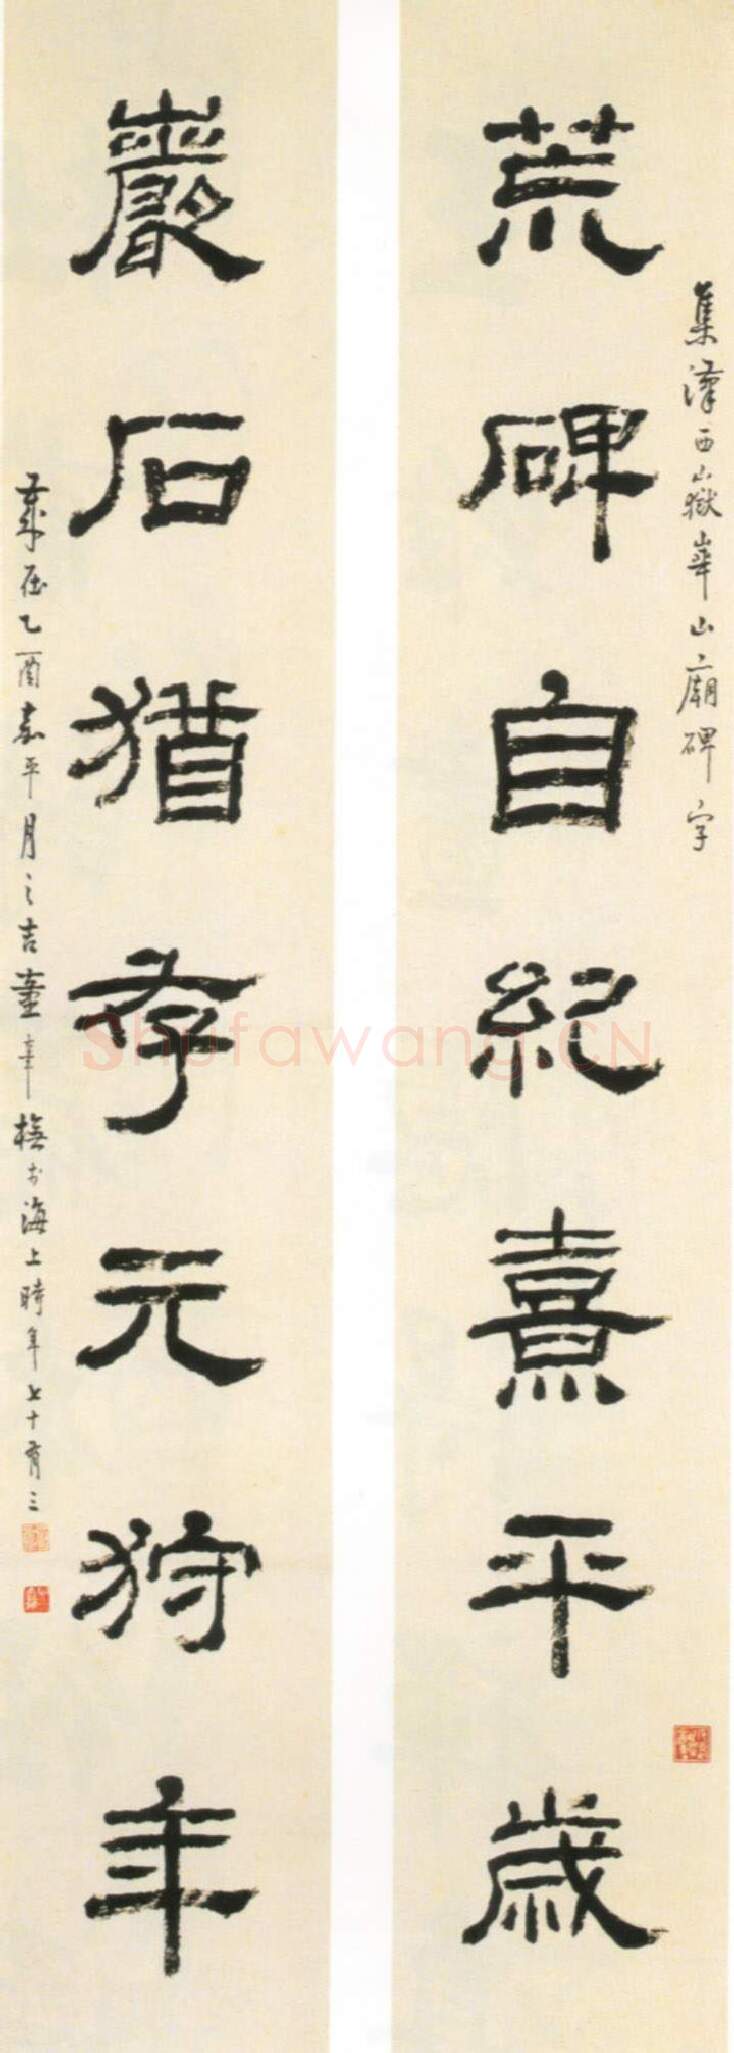 集漢西嶽華山廟碑字
荒碑自紀熹平歲
巖石猶存元狩年
歲在乙酉嘉平月之吉童辛橅於海上時年七十有三
Shufawang.CN